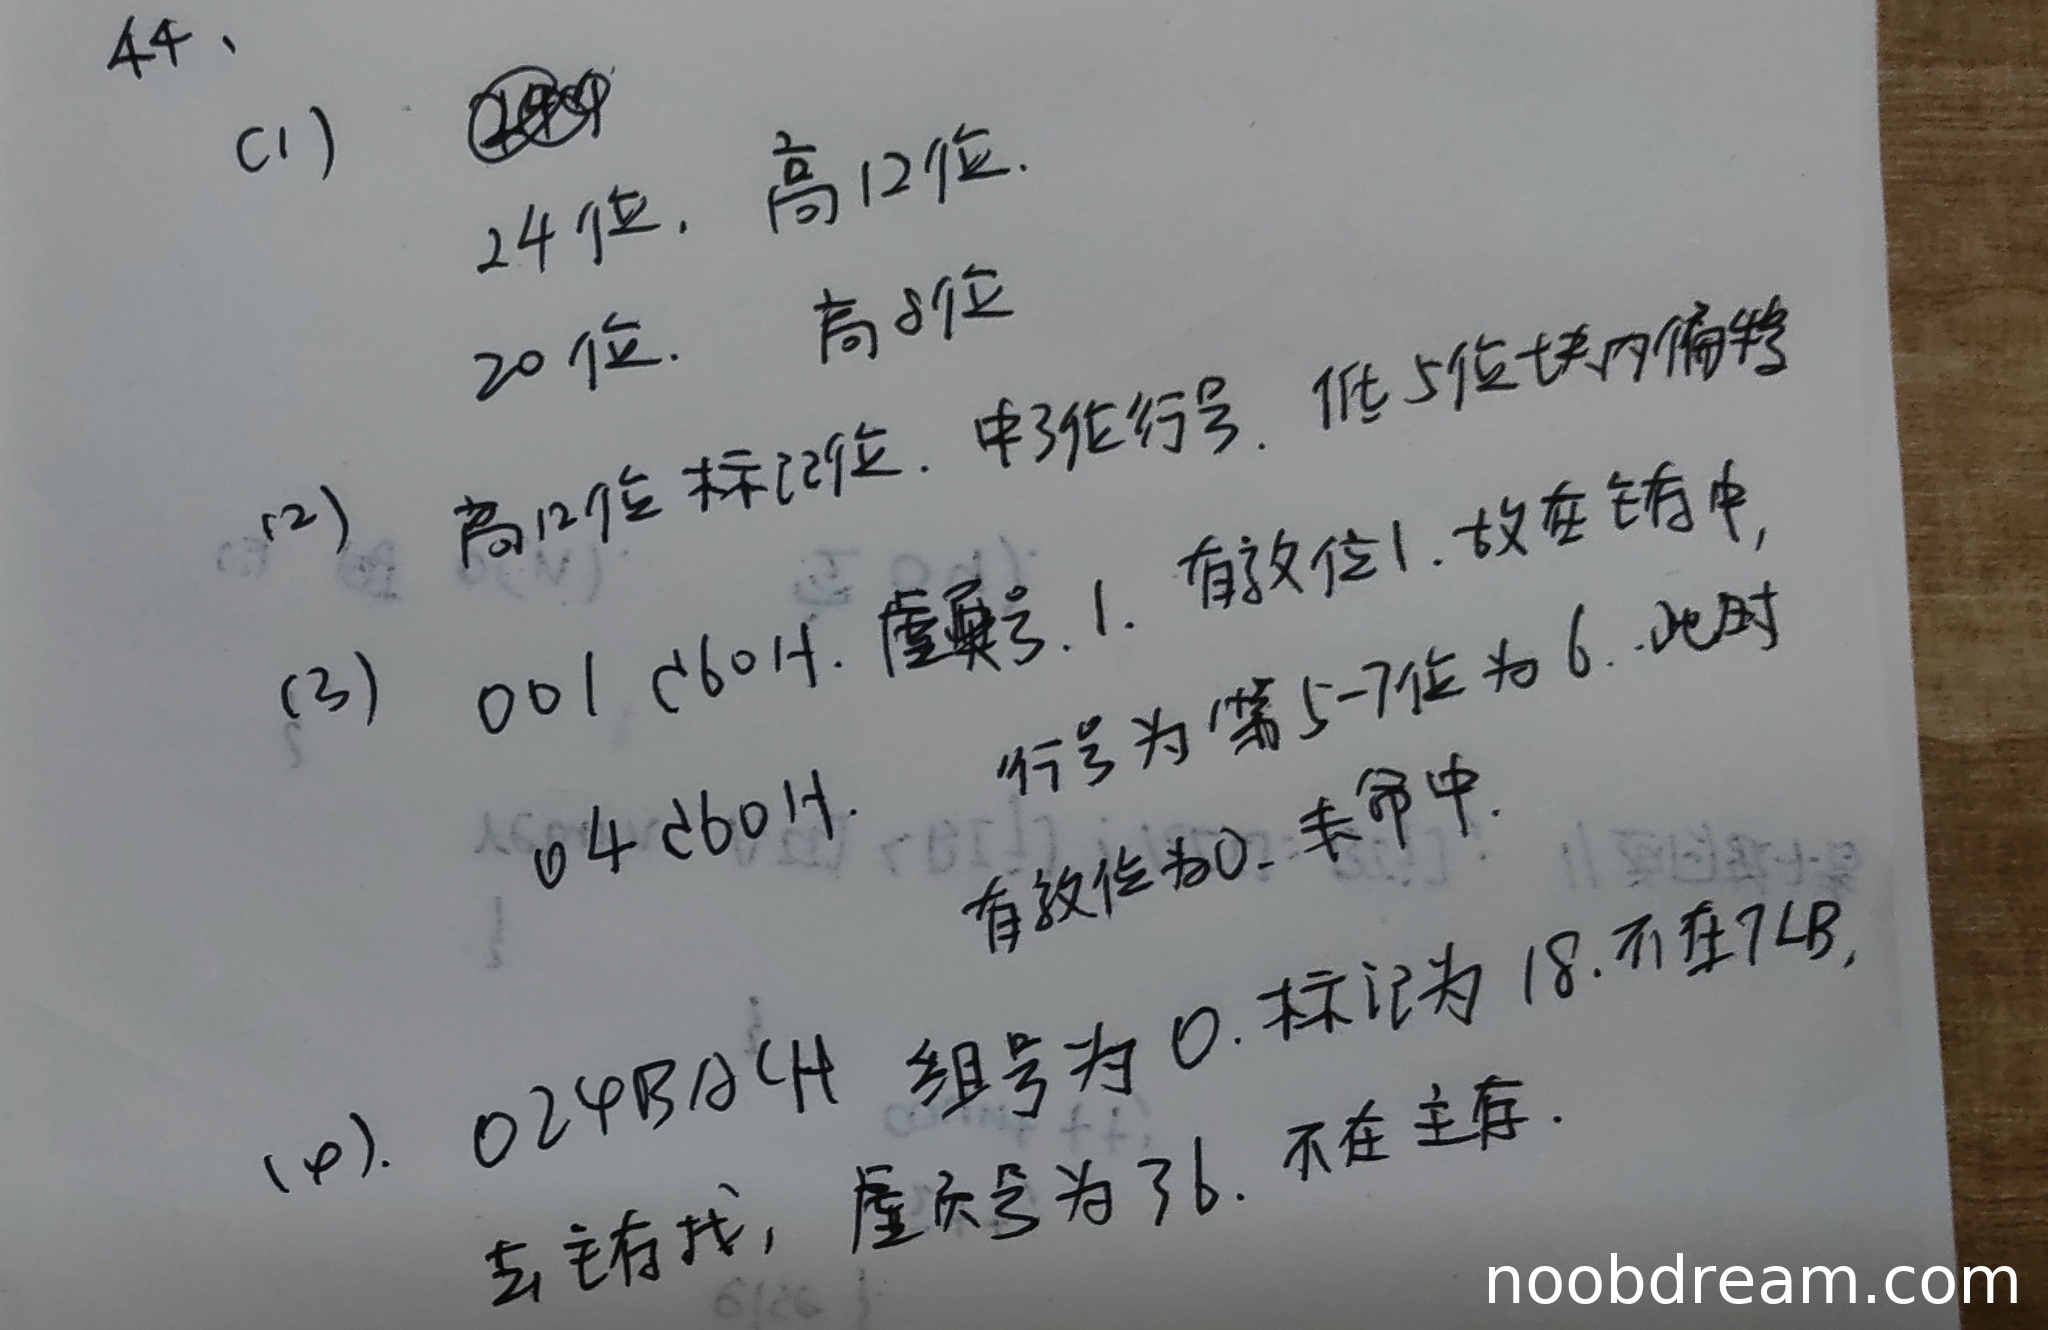 44、
(1)
24位. 高12位.
20位. 高8位
(2) 高12位标记位. 中3位行号. 低5位块内偏移
(3) 001c60H. 虚页号.1. 有效位1.故在主存中,
04c60H. 行号为第5-7位为6..此时
有效位为0.未命中.
(4). 024BACH 组号为0.标记为18.不在TLB,
去主存找, 虚页号为36.不在主存.
noobdream.com